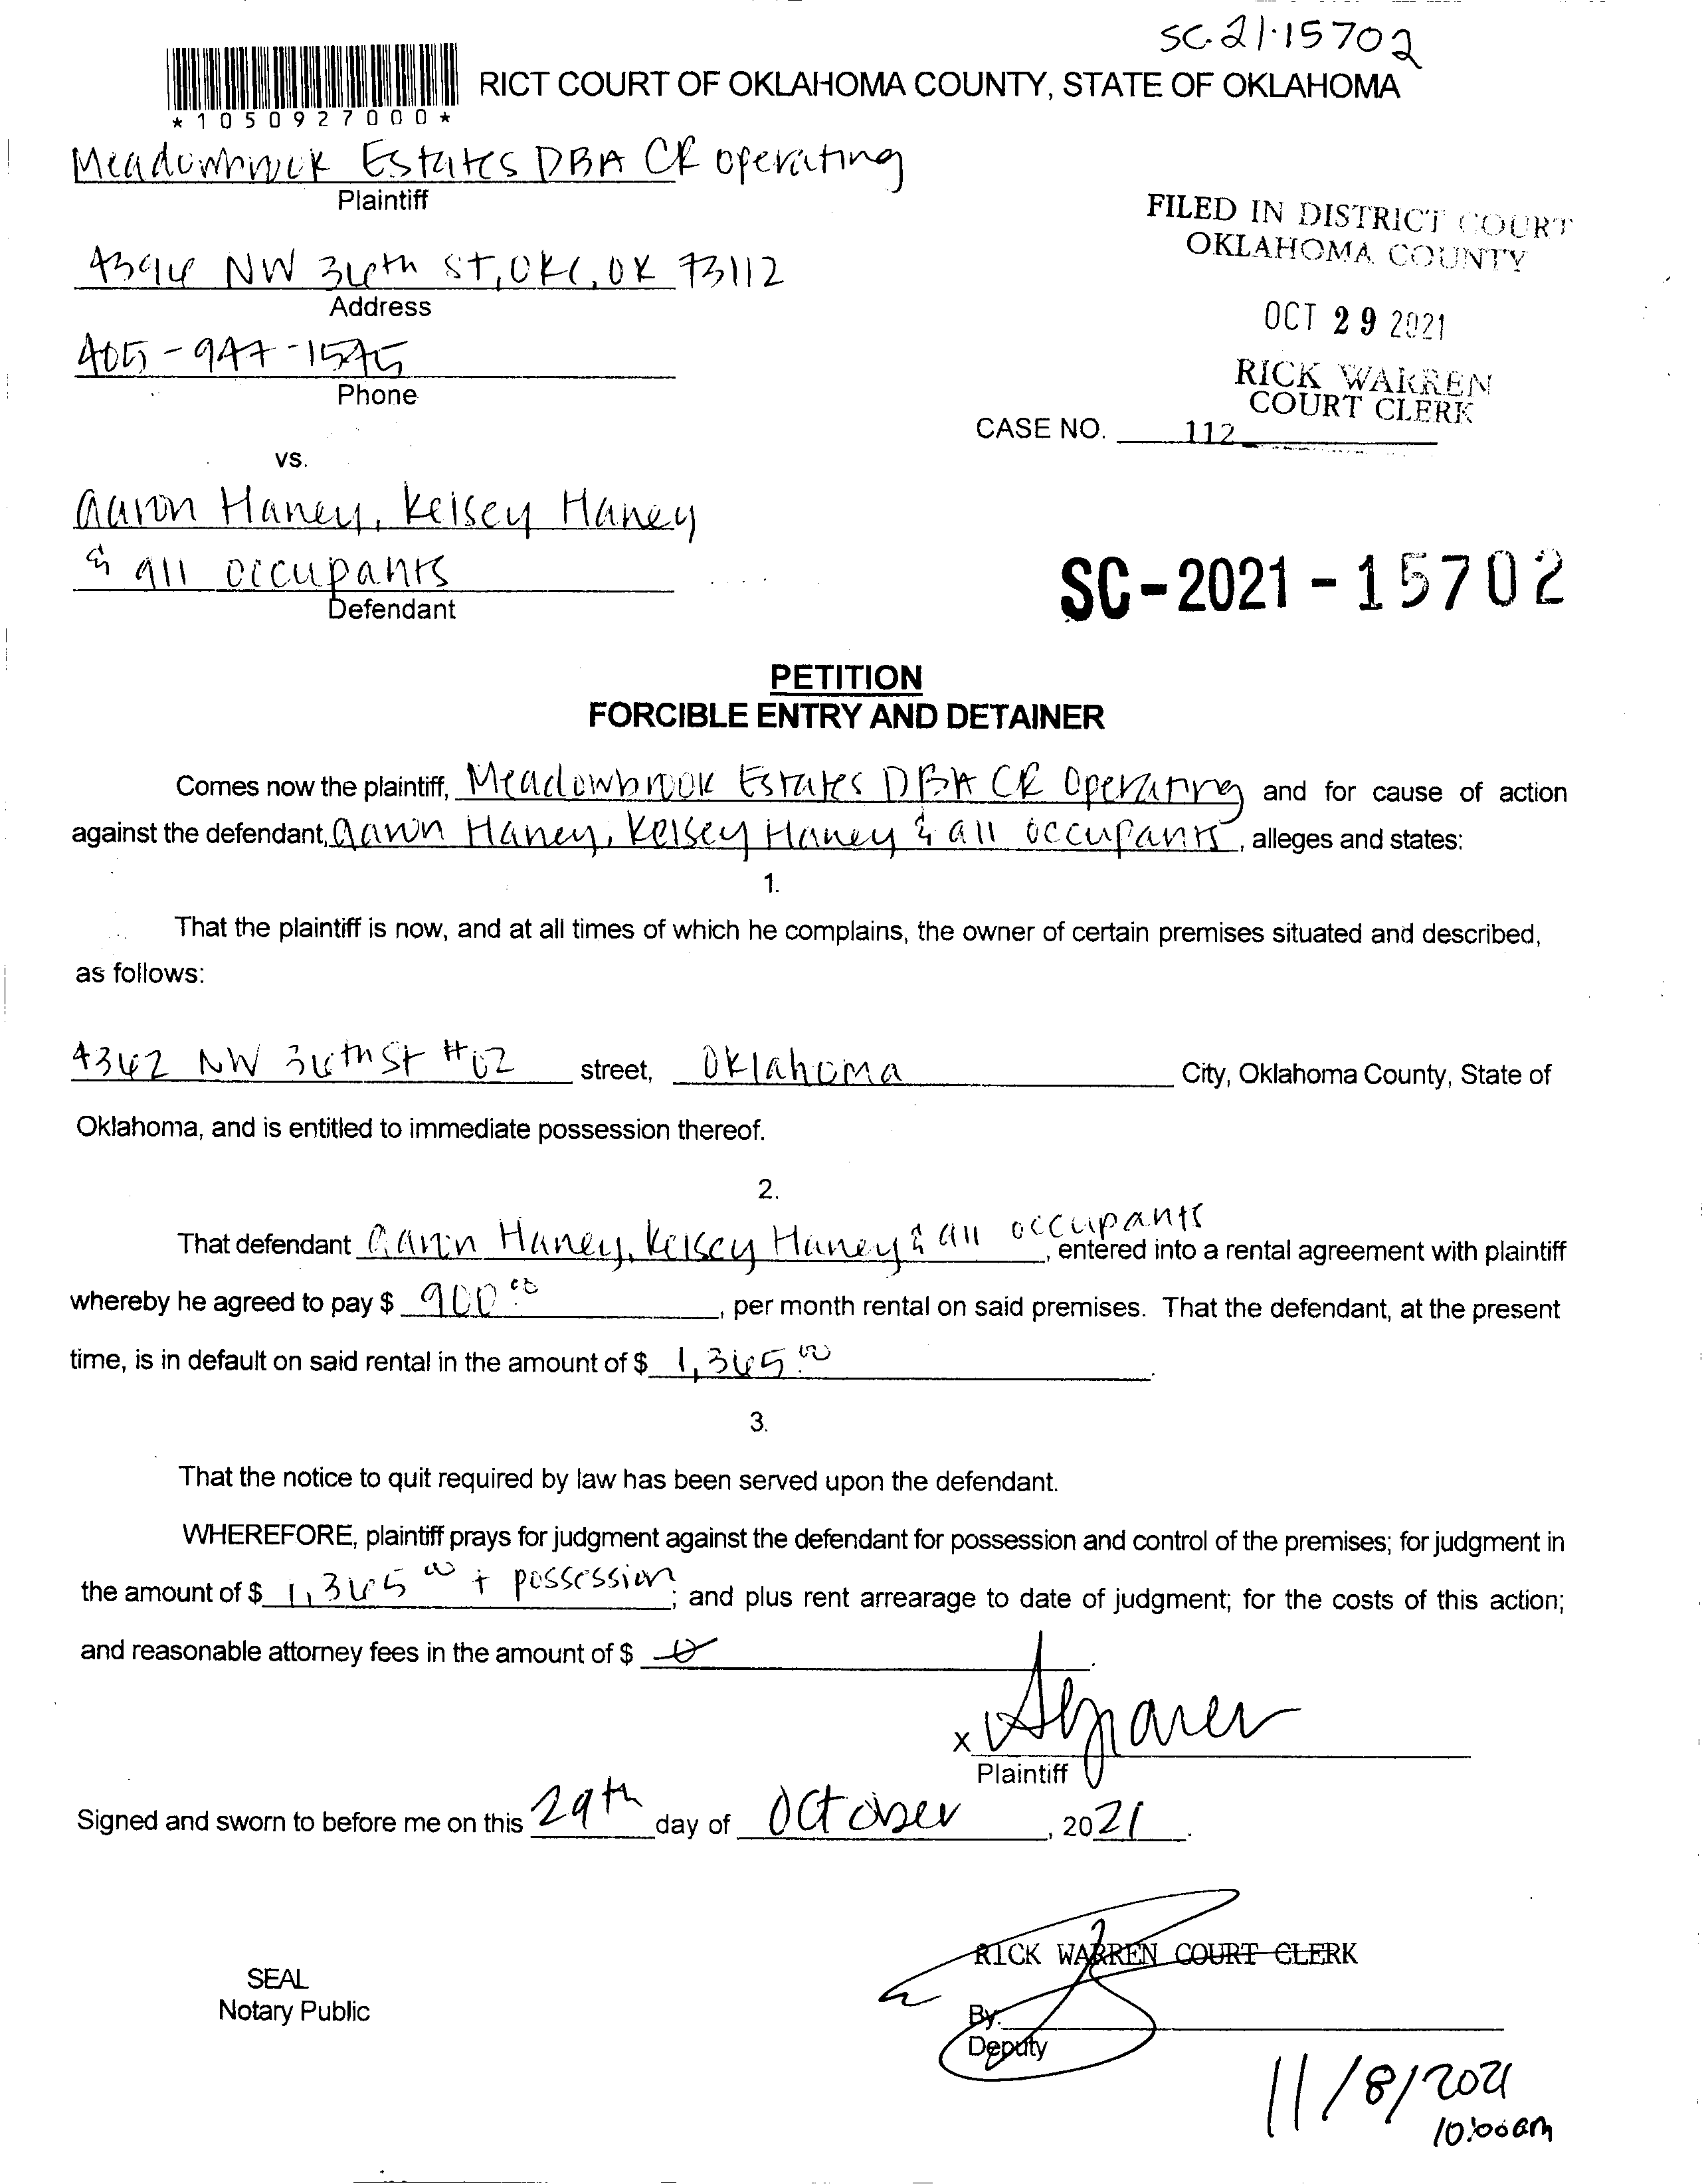 SC-21-15702
RICT COURT OF OKLAHOMA COUNTY, STATE OF OKLAHOMA
*1050927000*
Meadowbrook Estates DBA CR Operating
Plaintiff
FILED IN DISTRICT COURT
OKLAHOMA COUNTY
4394 NW 36th ST, OKC, OK 73112
Address
OCT 29 2021
405-947-1575
Phone
RICK WARREN
COURT CLERK
CASE NO. 112
vs.
Aaron Haney, Kelsey Haney
& all occupants
Defendant
SC-2021-15702
PETITION
FORCIBLE ENTRY AND DETAINER
Comes now the plaintiff, Meadowbrook Estates DBA CR Operating and for cause of action
against the defendant, Aaron Haney, Kelsey Haney & all occupants, alleges and states:
1.
That the plaintiff is now, and at all times of which he complains, the owner of certain premises situated and described,
as follows:
4362 NW 36th St #62 street, Oklahoma City, Oklahoma County, State of
Oklahoma, and is entitled to immediate possession thereof.
2.
That defendant Aaron Haney, Kelsey Haney & all occupants, entered into a rental agreement with plaintiff
whereby he agreed to pay $ 900.00, per month rental on said premises. That the defendant, at the present
time, is in default on said rental in the amount of $ 1,365.00.
3.
That the notice to quit required by law has been served upon the defendant.
WHEREFORE, plaintiff prays for judgment against the defendant for possession and control of the premises; for judgment in
the amount of $ 1,365.00 + possession; and plus rent arrearage to date of judgment; for the costs of this action;
and reasonable attorney fees in the amount of $ 0.
X
Plaintiff
Signed and sworn to before me on this 29th day of October, 2021.
RICK WARREN COURT CLERK
SEAL
Notary Public
By:
Deputy
11/8/2021
10:00am